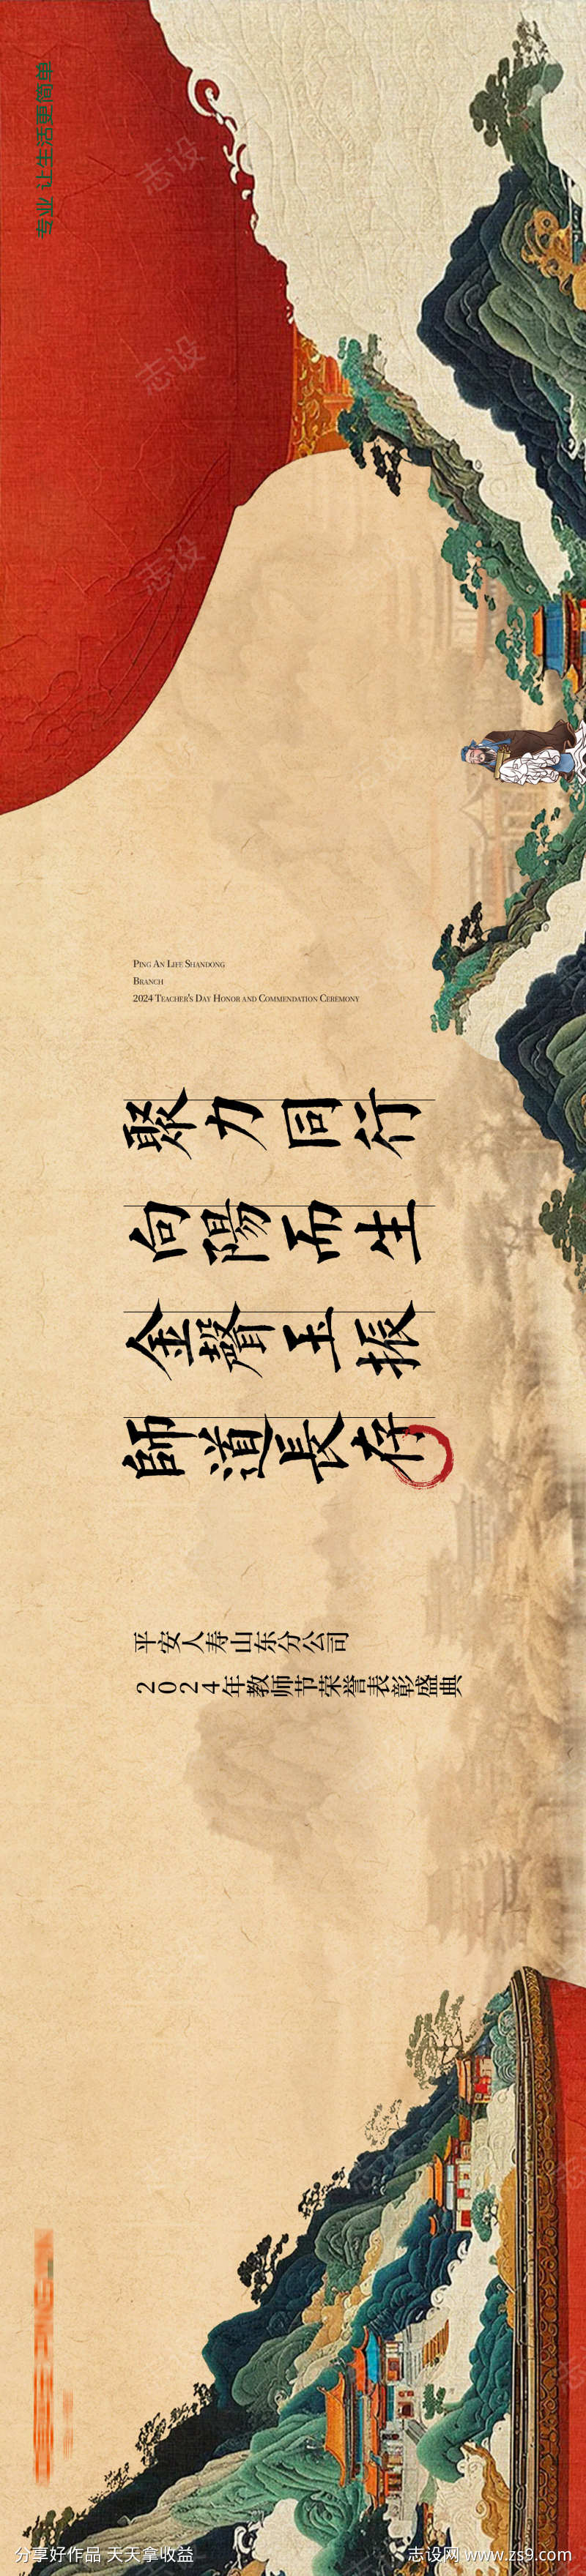 专业 让生活更简单
PING AN LIFE SHANDONG
BRANCH
2024 TEACHER'S DAY HONOR AND COMMENDATION CEREMONY
聚力同行
向陽而生
金聲玉振
師道長存
平安人寿山东分公司
2024年教师节荣誉表彰盛典
志设
志设
志设
分享好作品 天天拿收益
志设网 www.zs9.com